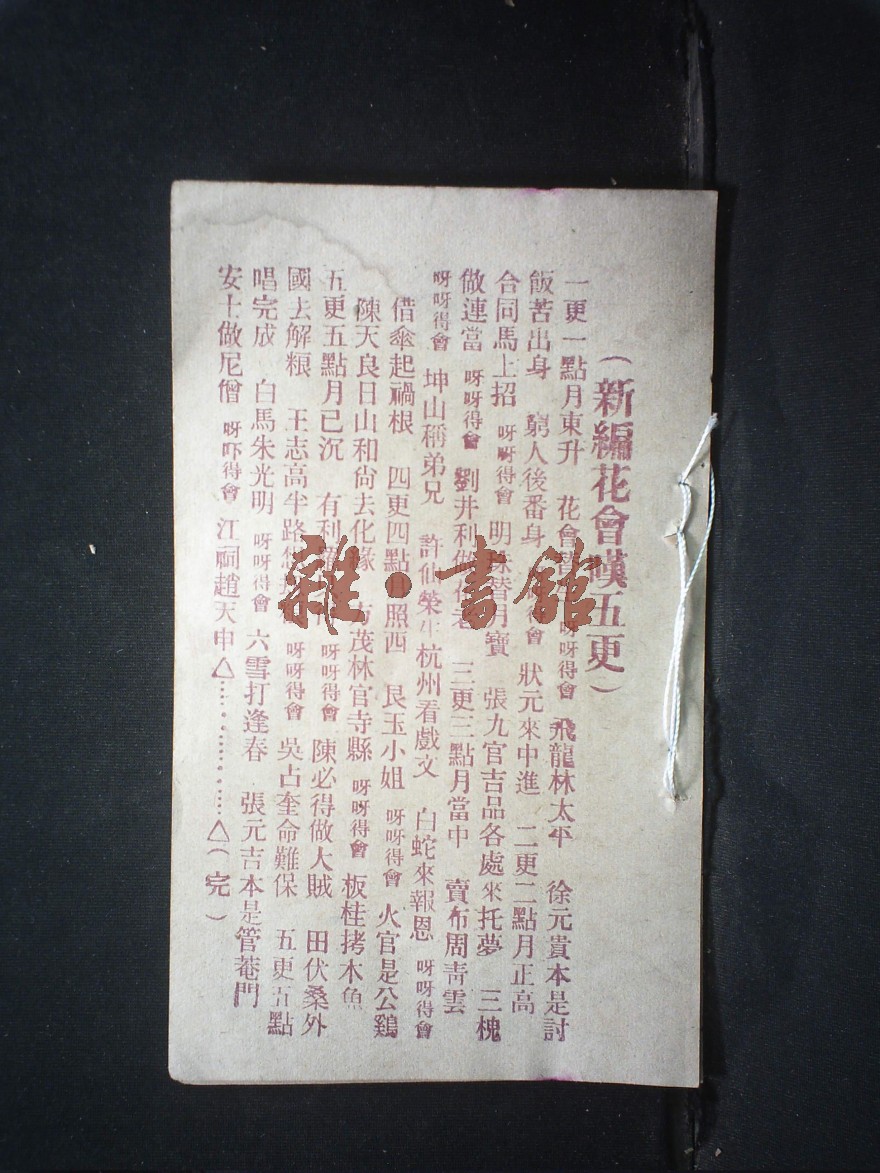 （新編花會嘆五更）
一更一點月東升 花會 呀呀得會 飛龍林太平 徐元貴本是討
飯苦出身 窮人後番身 得會 狀元來中進 二更二點月正高
合同馬上招 呀呀得會 明珠替月寶 張九官吉品各處來托夢 三槐
做連當 呀呀得會 劉井利做 三更三點月當中 賣布周青雲
呀呀得會 坤山稱弟兄 許仙榮生杭州看戲文 白蛇來報恩 呀呀得會
借傘起禍根 四更四點月照西 艮玉小姐 呀呀得會 火官是公鷄
陳天良日山和尙去化緣 方茂林官寺縣 呀呀得會 板桂拷木魚
五更五點月已沉 有利 呀呀得會 陳必得做大賊 田伏桑外
國去解粮 王志高半路 呀呀得會 吳占奎命難保 五更五點
唱完成 白馬朱光明 呀呀得會 六雪打逢春 張元吉本是管菴門
安士做尼僧 呀吓得會 江祠趙天申△………………△（完）
雜·書館